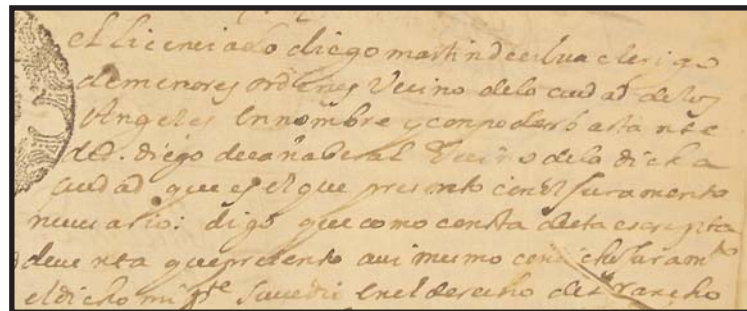 el licenciado diego martin de silua clerigo
de menores ordenes Vecino de la ciudad de los
Angeles En nombre y con poder bastante
de D. diego de cañaberal Vecino de la dicha
ciudad que es el que presento con el Juramento
necesario: digo que como consta desta escripta
de uenta que presento asi mismo con dicho Juramto
el dicho mi pte sucedio En el derecho de Vn rancho